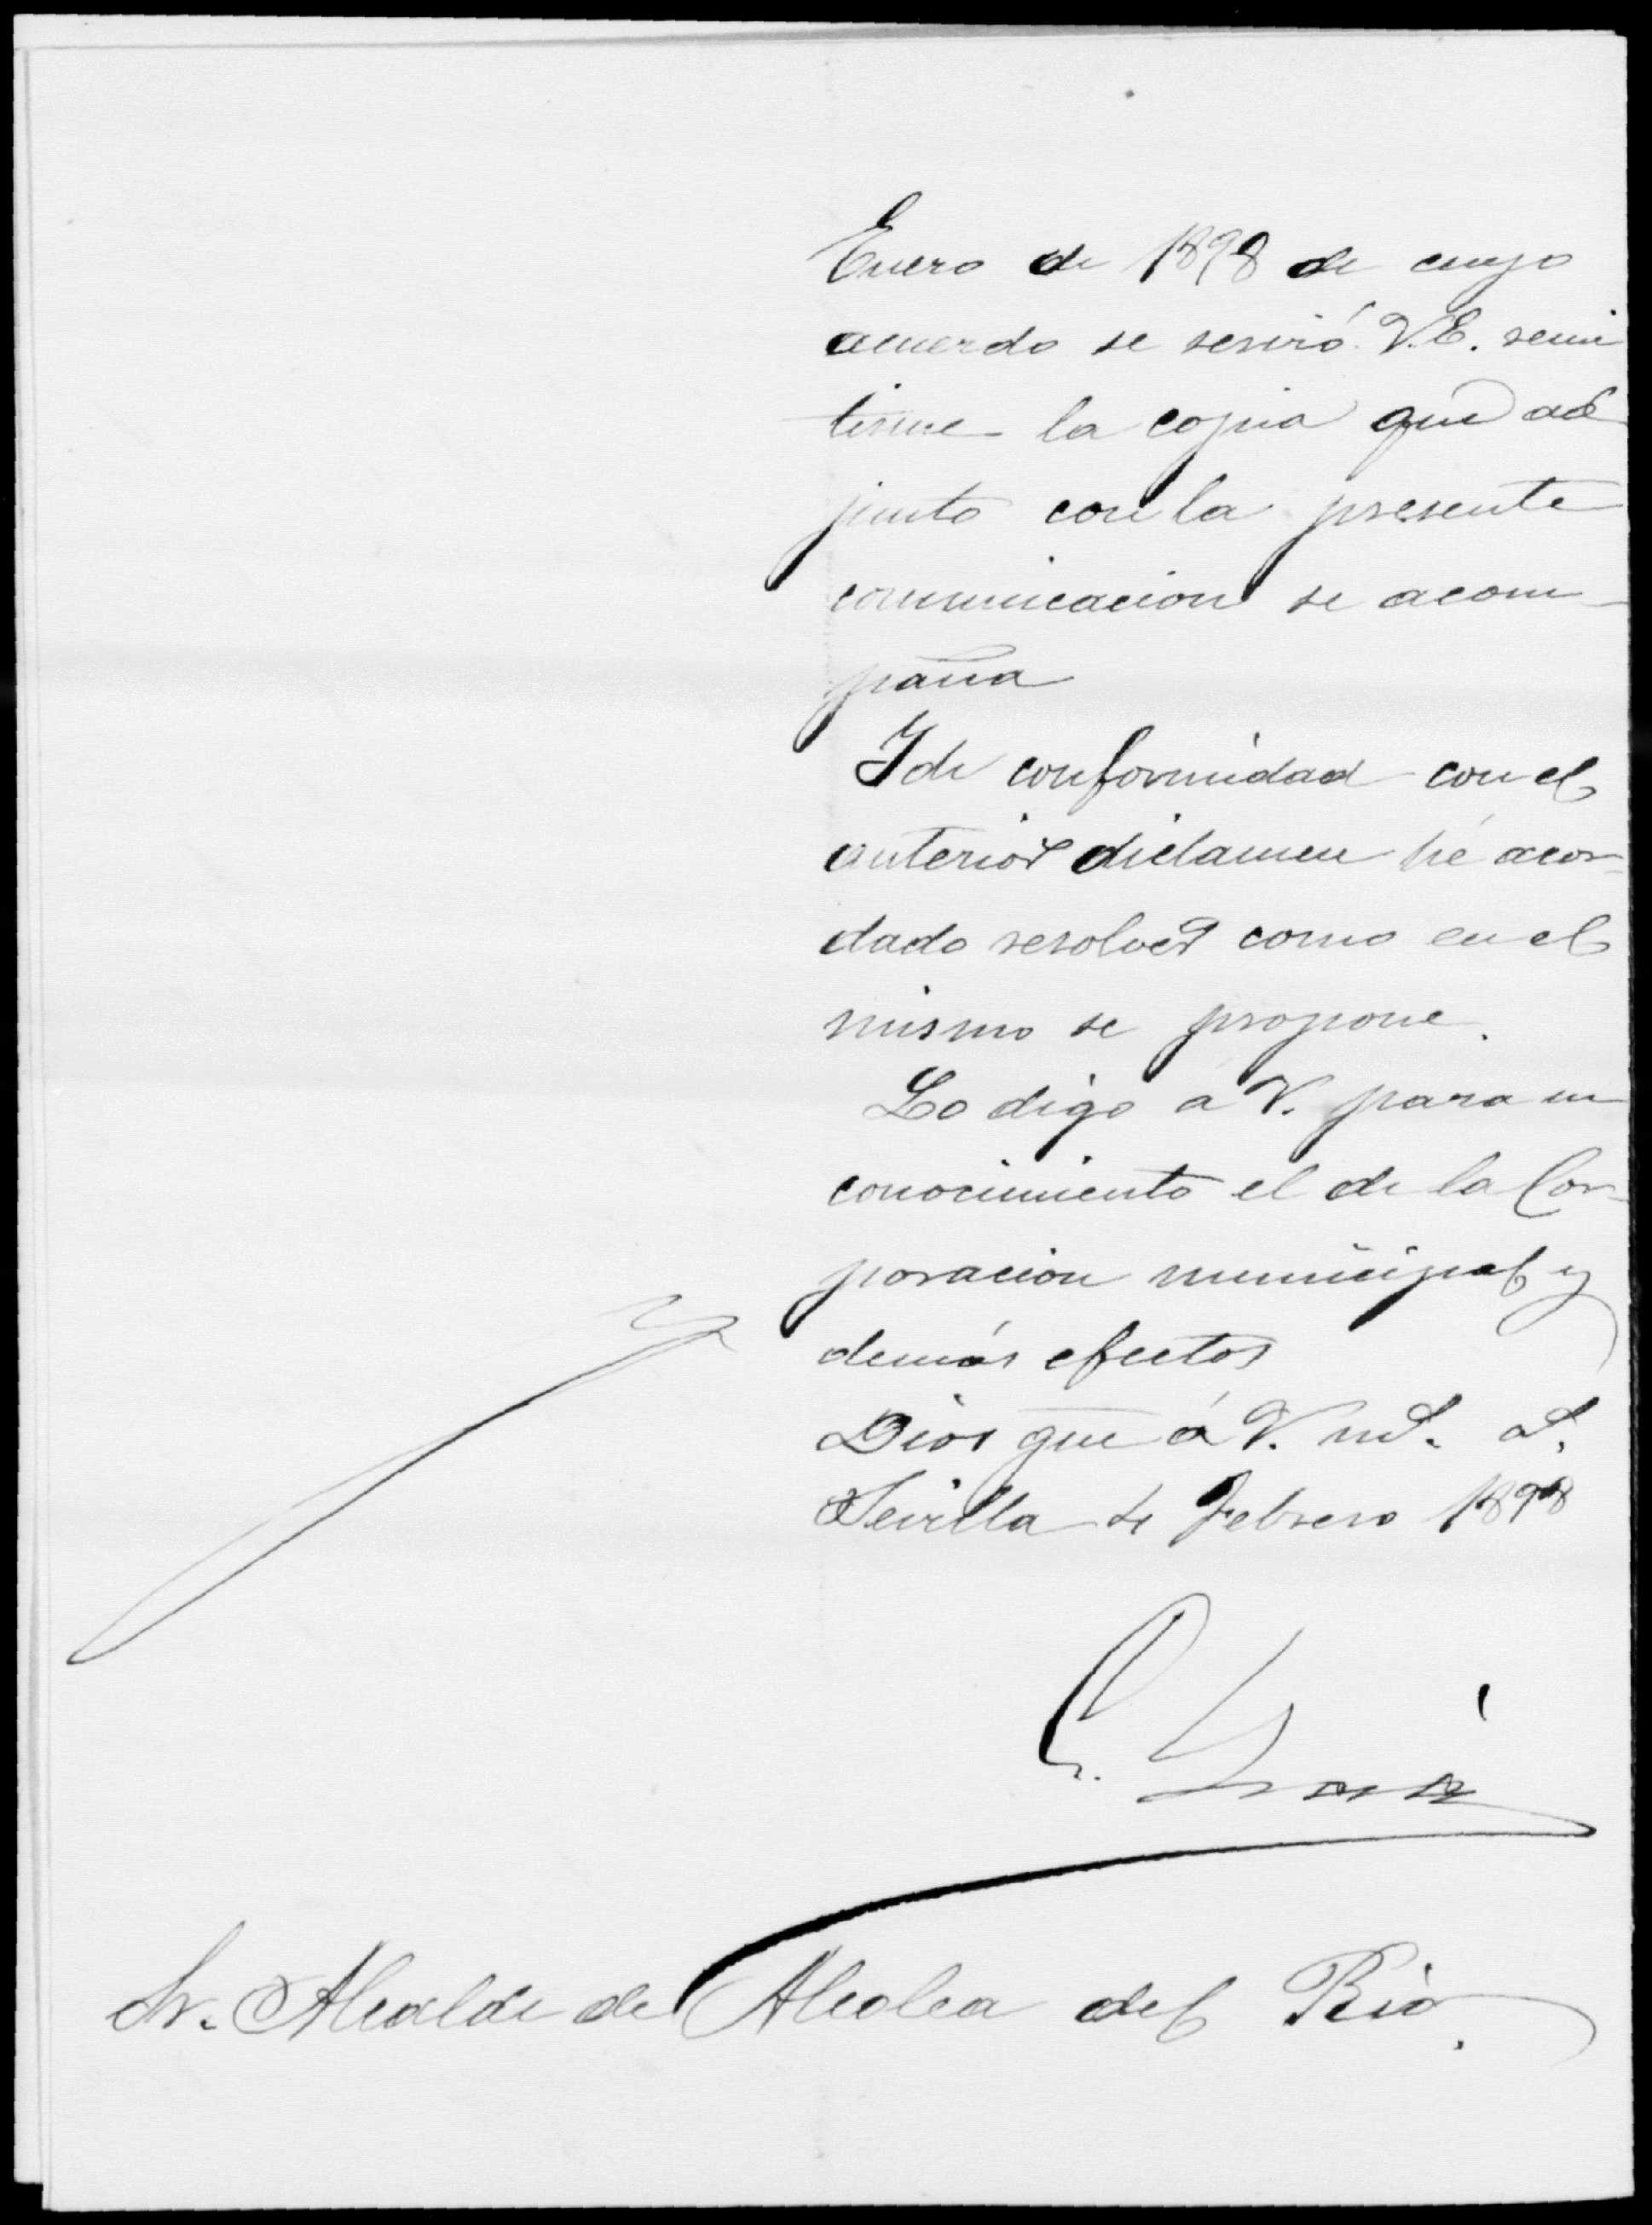 Enero de 1898 de cuyo
acuerdo se sesviró V.E. remi
tirme la copia que ad
junto con la presente
comunicacion se acom-
paña
Y de conformidad con el
anterior dictamen hé acor-
dado resolver como en el
mismo se propone.
Lo digo á V. para su
conocimiento el de la Cor-
poracion municipal y
demás efectos
Dios gue á V. ms. as.
Sevilla 4 Febrero 1898
Sr. Alcalde de Alcolea del Rio.